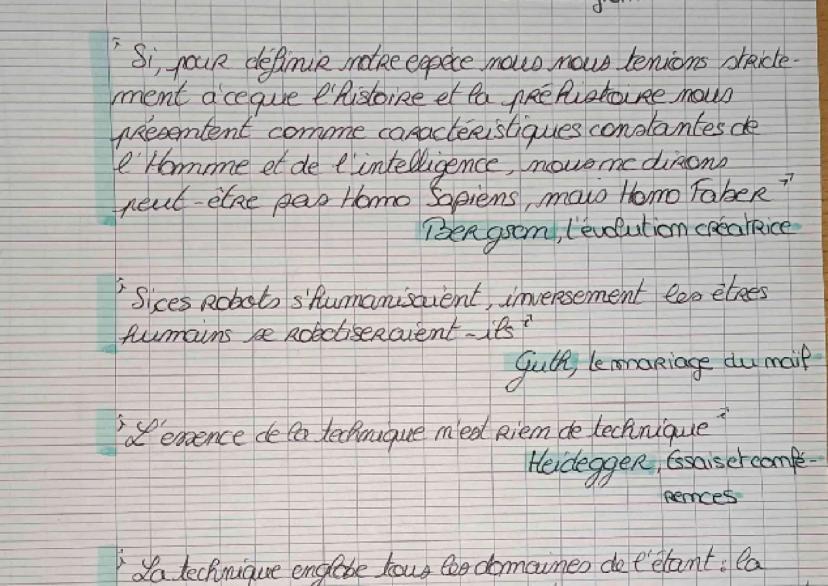 " Si, pour définir notre espèce nous nous tenions stricte-
ment à ce que l'histoire et la préhistoire nous
présentent comme caractéristiques constantes de
l'Homme et de l'intelligence, nous ne dirons
peut-être pas Homo Sapiens, mais Homo Faber "
Bergson, l'évolution créatrice
" Si ces robots s'humanisaient, inversement les êtres
humains se robotiseraient-ils "
Guth, le mariage du naïf
" L'essence de la technique n'est rien de technique "
Heidegger, Essais et confé-
rences
" La technique englobe tous les domaines de l'étant : la